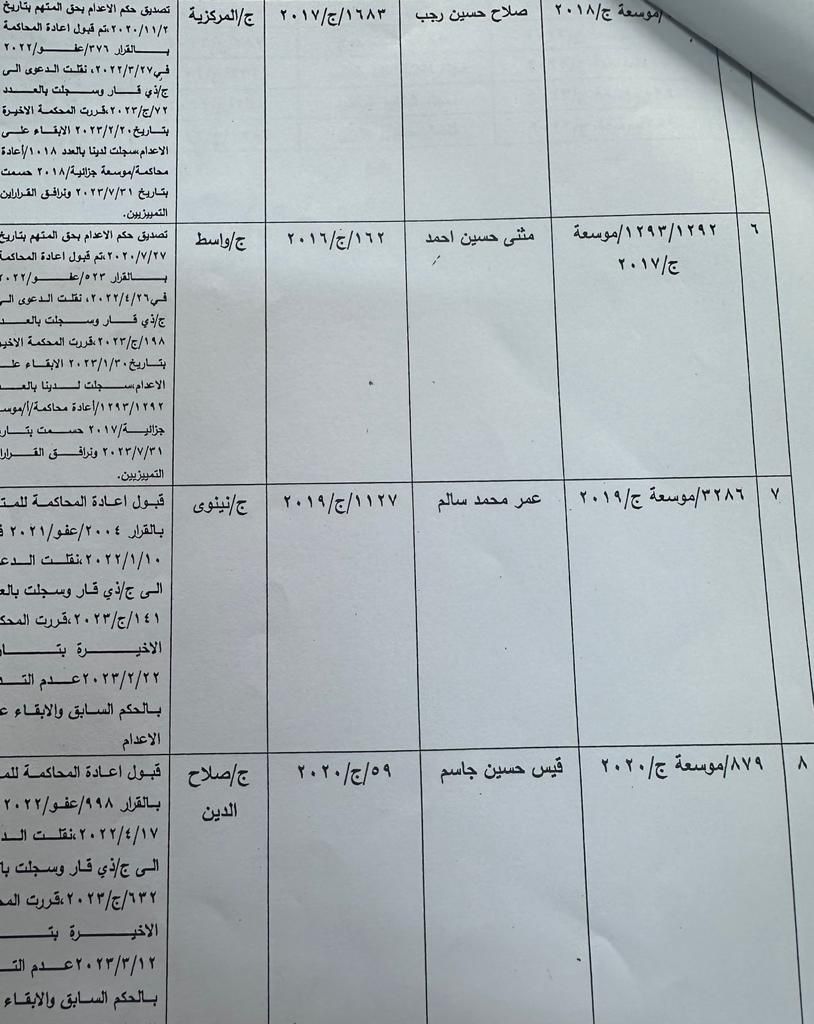 موسعة ج/٢٠١٨
صلاح حسين رجب
١٦٨٣/ج/٢٠١٧
ج/المركزية
تصديق حكم الاعدام بحق المتهم بتاريخ
٢٠٢٠/١١/٢،تم قبول اعادة المحاكمة
بالقرار ٣٧٦/عفو/٢٠٢٢
في٢٠٢٢/٣/٢٧، نقلت الدعوى الى
ج/ذي قار وسجلت بالعدد
٧٢/ج/٢٠٢٣،قررت المحكمة الاخيرة
بتاريخ٢٠٢٣/٢/٢٠ الابقاء على
الاعدام،سجلت لدينا بالعدد ١٠١٨/أعادة
محاكمة/موسعة جزائية/٢٠١٨ حسمت
بتاريخ ٢٠٢٣/٧/٣١ ونرافق القرارين
التمييزيين.
٦
١٢٩٣/١٢٩٢/موسعة
ج/٢٠١٧
مثنى حسين احمد
١٦٢/ج/٢٠١٦
ج/واسط
تصديق حكم الاعدام بحق المتهم بتاريخ
٢٠٢٠/٧/٢٧،تم قبول اعادة المحاكمة
بالقرار ٥٢٣/عفو/٢٠٢٢
في٢٠٢٢/٤/٢٦، نقلت الدعوى الى
ج/ذي قار وسجلت
١٩٨/ج/٢٠٢٣،قررت المحكمة
بتاريخ٢٠٢٣/١/٣٠ الابقاء
الاعدام،سجلت لدينا
١٢٩٣/١٢٩٢/أعادة محاكمة/
جزائية/٢٠١٧ حسمت
٢٠٢٣/٧/٣١ ونرافق
التمييزيين.
٧
٣٢٨٦/موسعة ج/٢٠١٩
عمر محمد سالم
١١٢٧/ج/٢٠١٩
ج/نينوى
قبول اعادة المحاكمة
بالقرار ٢٠٠٤/عفو/٢٠٢١
٢٠٢٢/١/١٠،نقلت
الى ج/ذي قار وسجلت
١٤١/ج/٢٠٢٣،قررت
الاخيرة
٢٠٢٣/٢/٢٢عدم
بالحكم السابق والابقاء
الاعدام
٨
٨٧٩/موسعة ج/٢٠٢٠
قيس حسين جاسم
٥٩/ج/٢٠٢٠
ج/صلاح
الدين
قبول اعادة المحاكمة
بالقرار ٩٩٨/عفو/٢٠٢٢
٢٠٢٢/٤/١٧،نقلت
الى ج/ذي قار وسجلت
٦٣٢/ج/٢٠٢٣،قررت
الاخيرة
٢٠٢٣/٣/١٢عدم
بالحكم السابق والابقاء